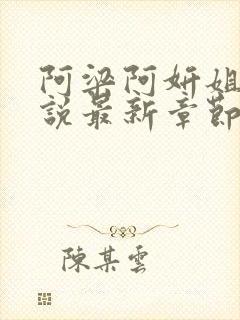 阿梁阿妍姐
說最新章節
陳某雲